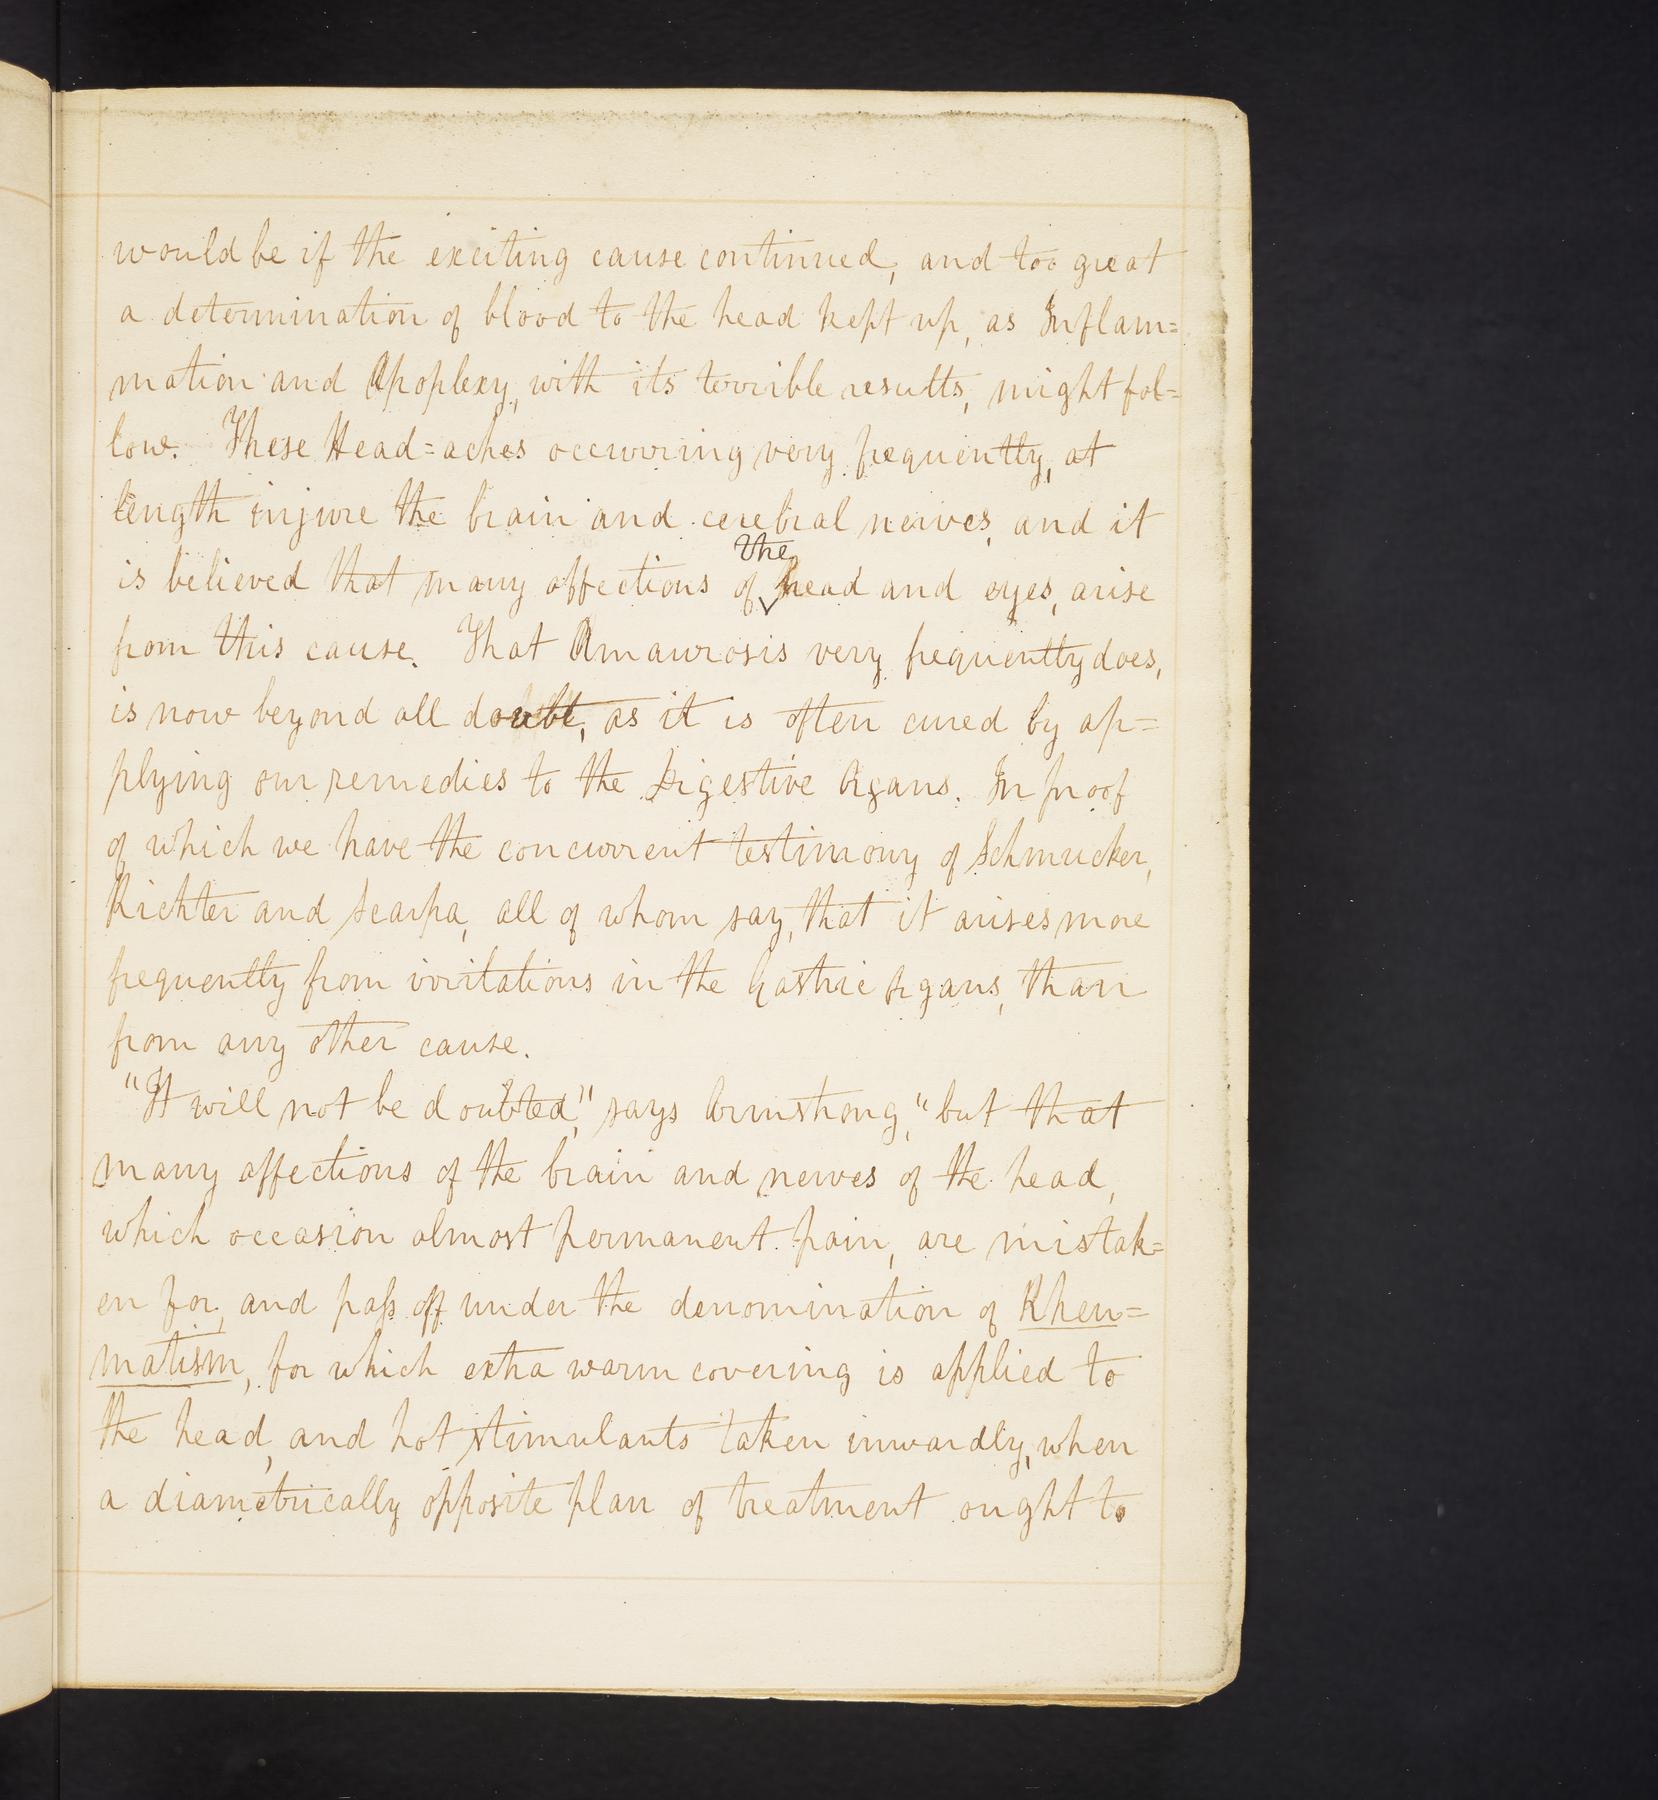 would be if the exciting cause continued, and too great
a determination of blood to the head kept up, as Inflam=
mation and Apoplexy, with its terrible results, might fol=
low. These Head=aches occurring very frequently, at
length injure the brain and cerebral nerves, and it
is believed that many affections of the head and eyes, arise
from this cause. That Amaurosis very frequently does,
is now beyond all doubt, as it is often cured by ap=
plying our remedies to the Digestive Organs. In proof
of which we have the concurrent testimony of Schmucker,
Richter and Scarpa, all of whom say, that it arises more
frequently from irritations in the Gastric Organs, than
from any other cause.
"It will not be doubted," says Armstrong, "but that
many affections of the brain and nerves of the head,
which occasion almost permanent pain, are mistak=
en for, and paſs off under the denomination of Rheu=
matism, for which extra warm covering is applied to
the head, and hot stimulants taken inwardly, when
a diametrically opposite plan of treatment ought to